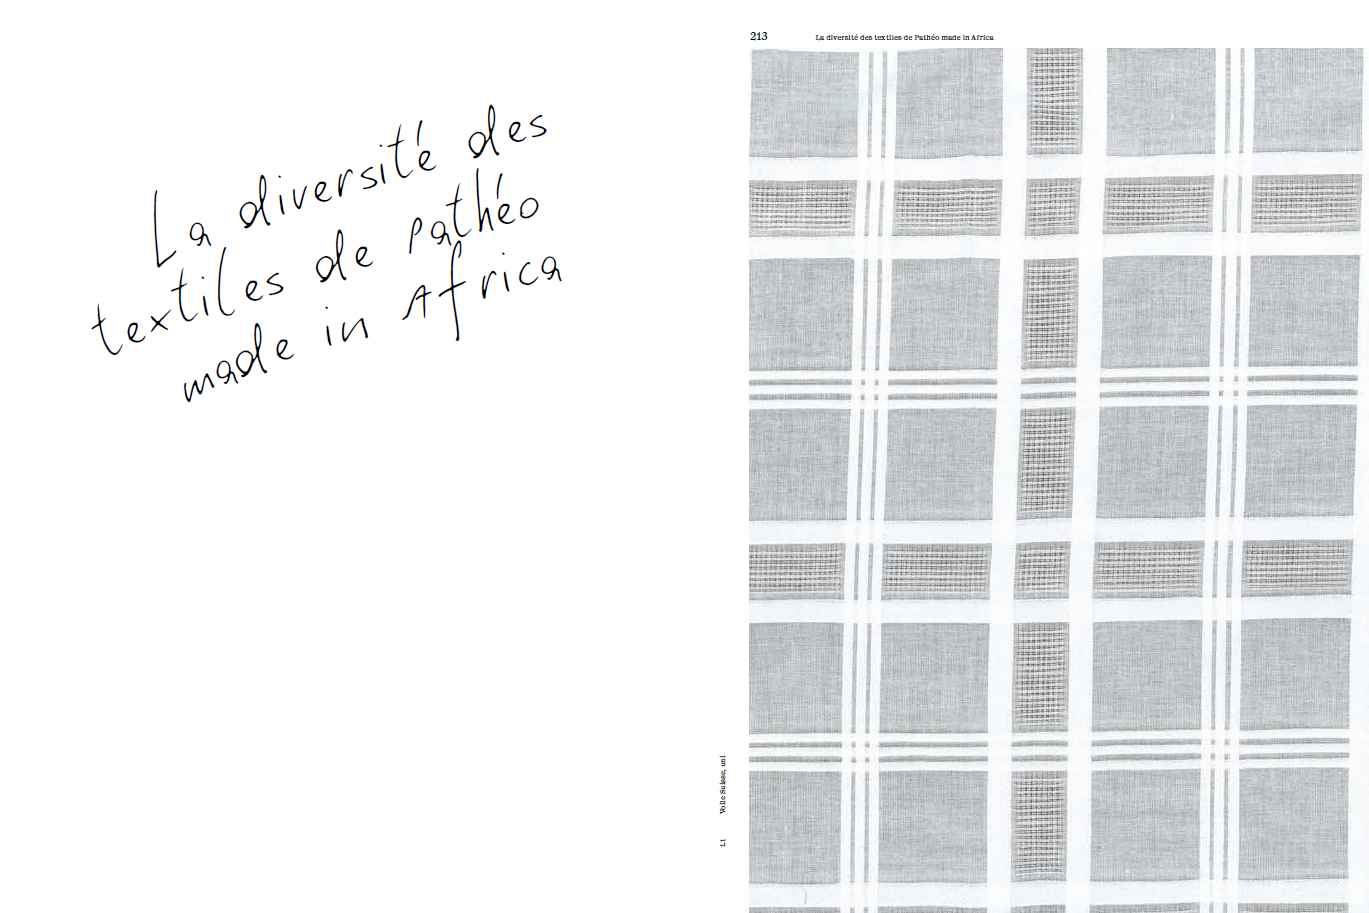 La diversité des
textiles de Pathéo
made in Africa
213
La diversité des textiles de Pathéo made in Africa
Voile Suisse, uni
L1